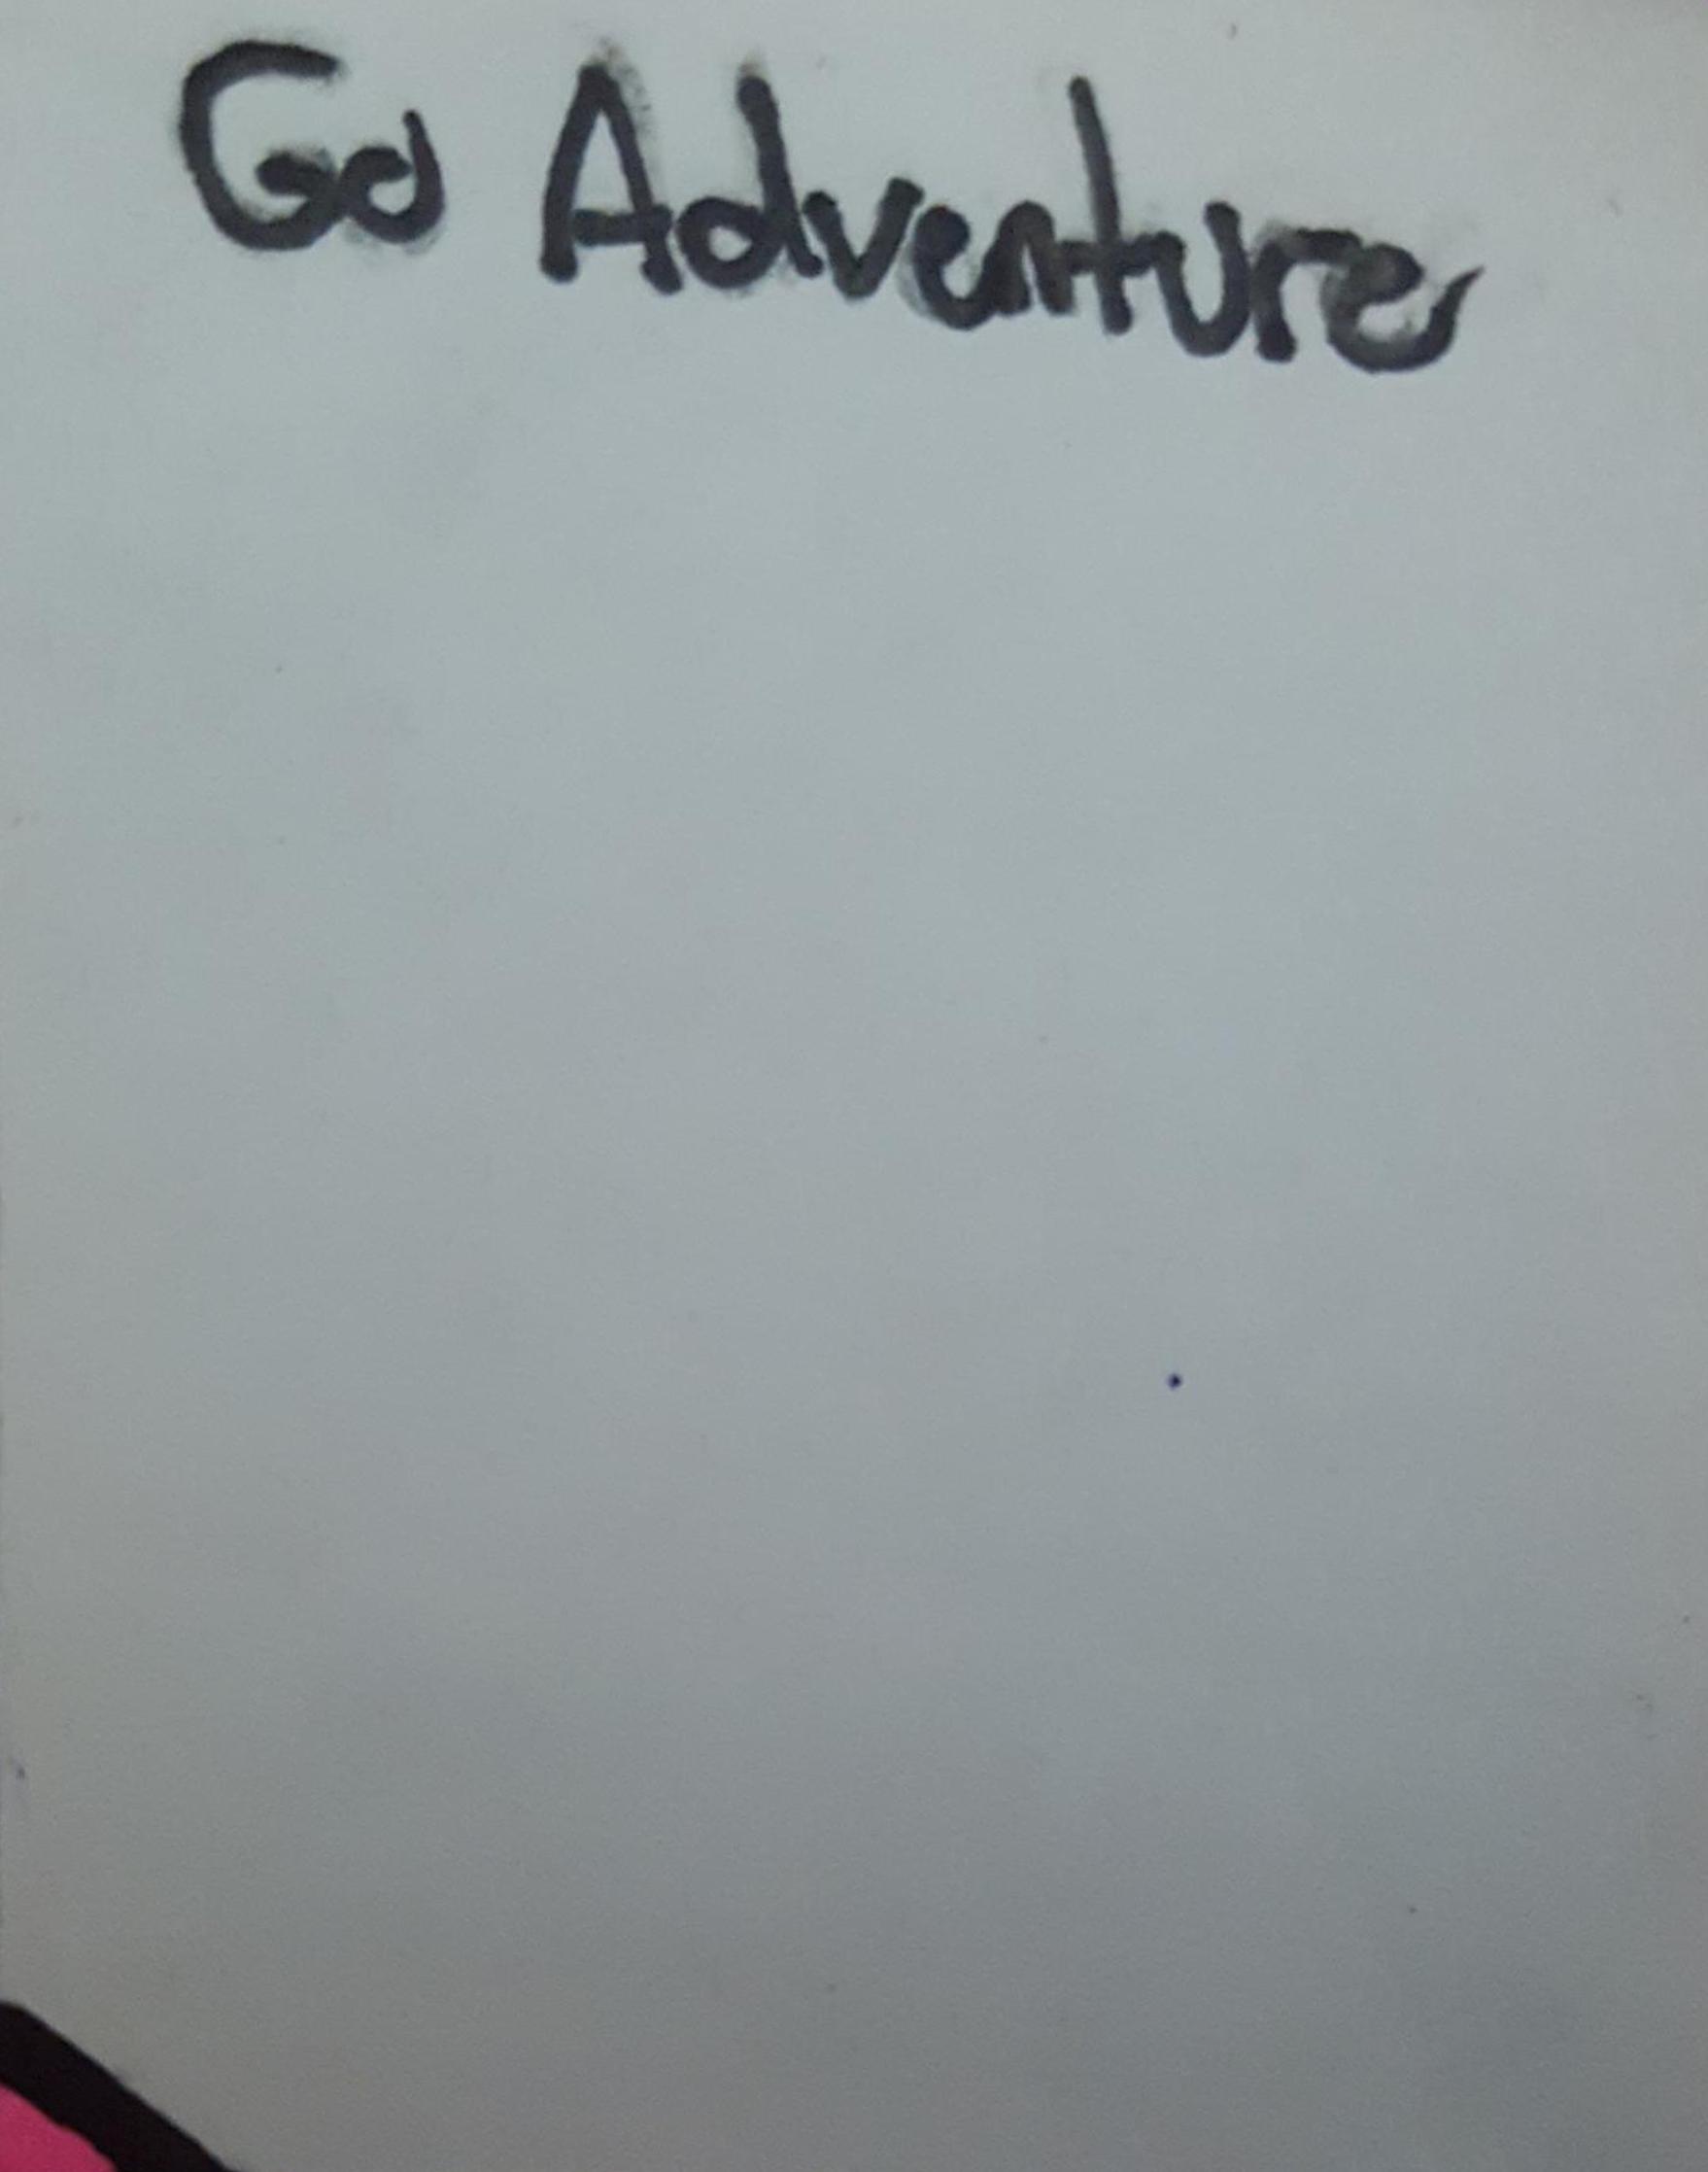 Go Adventure